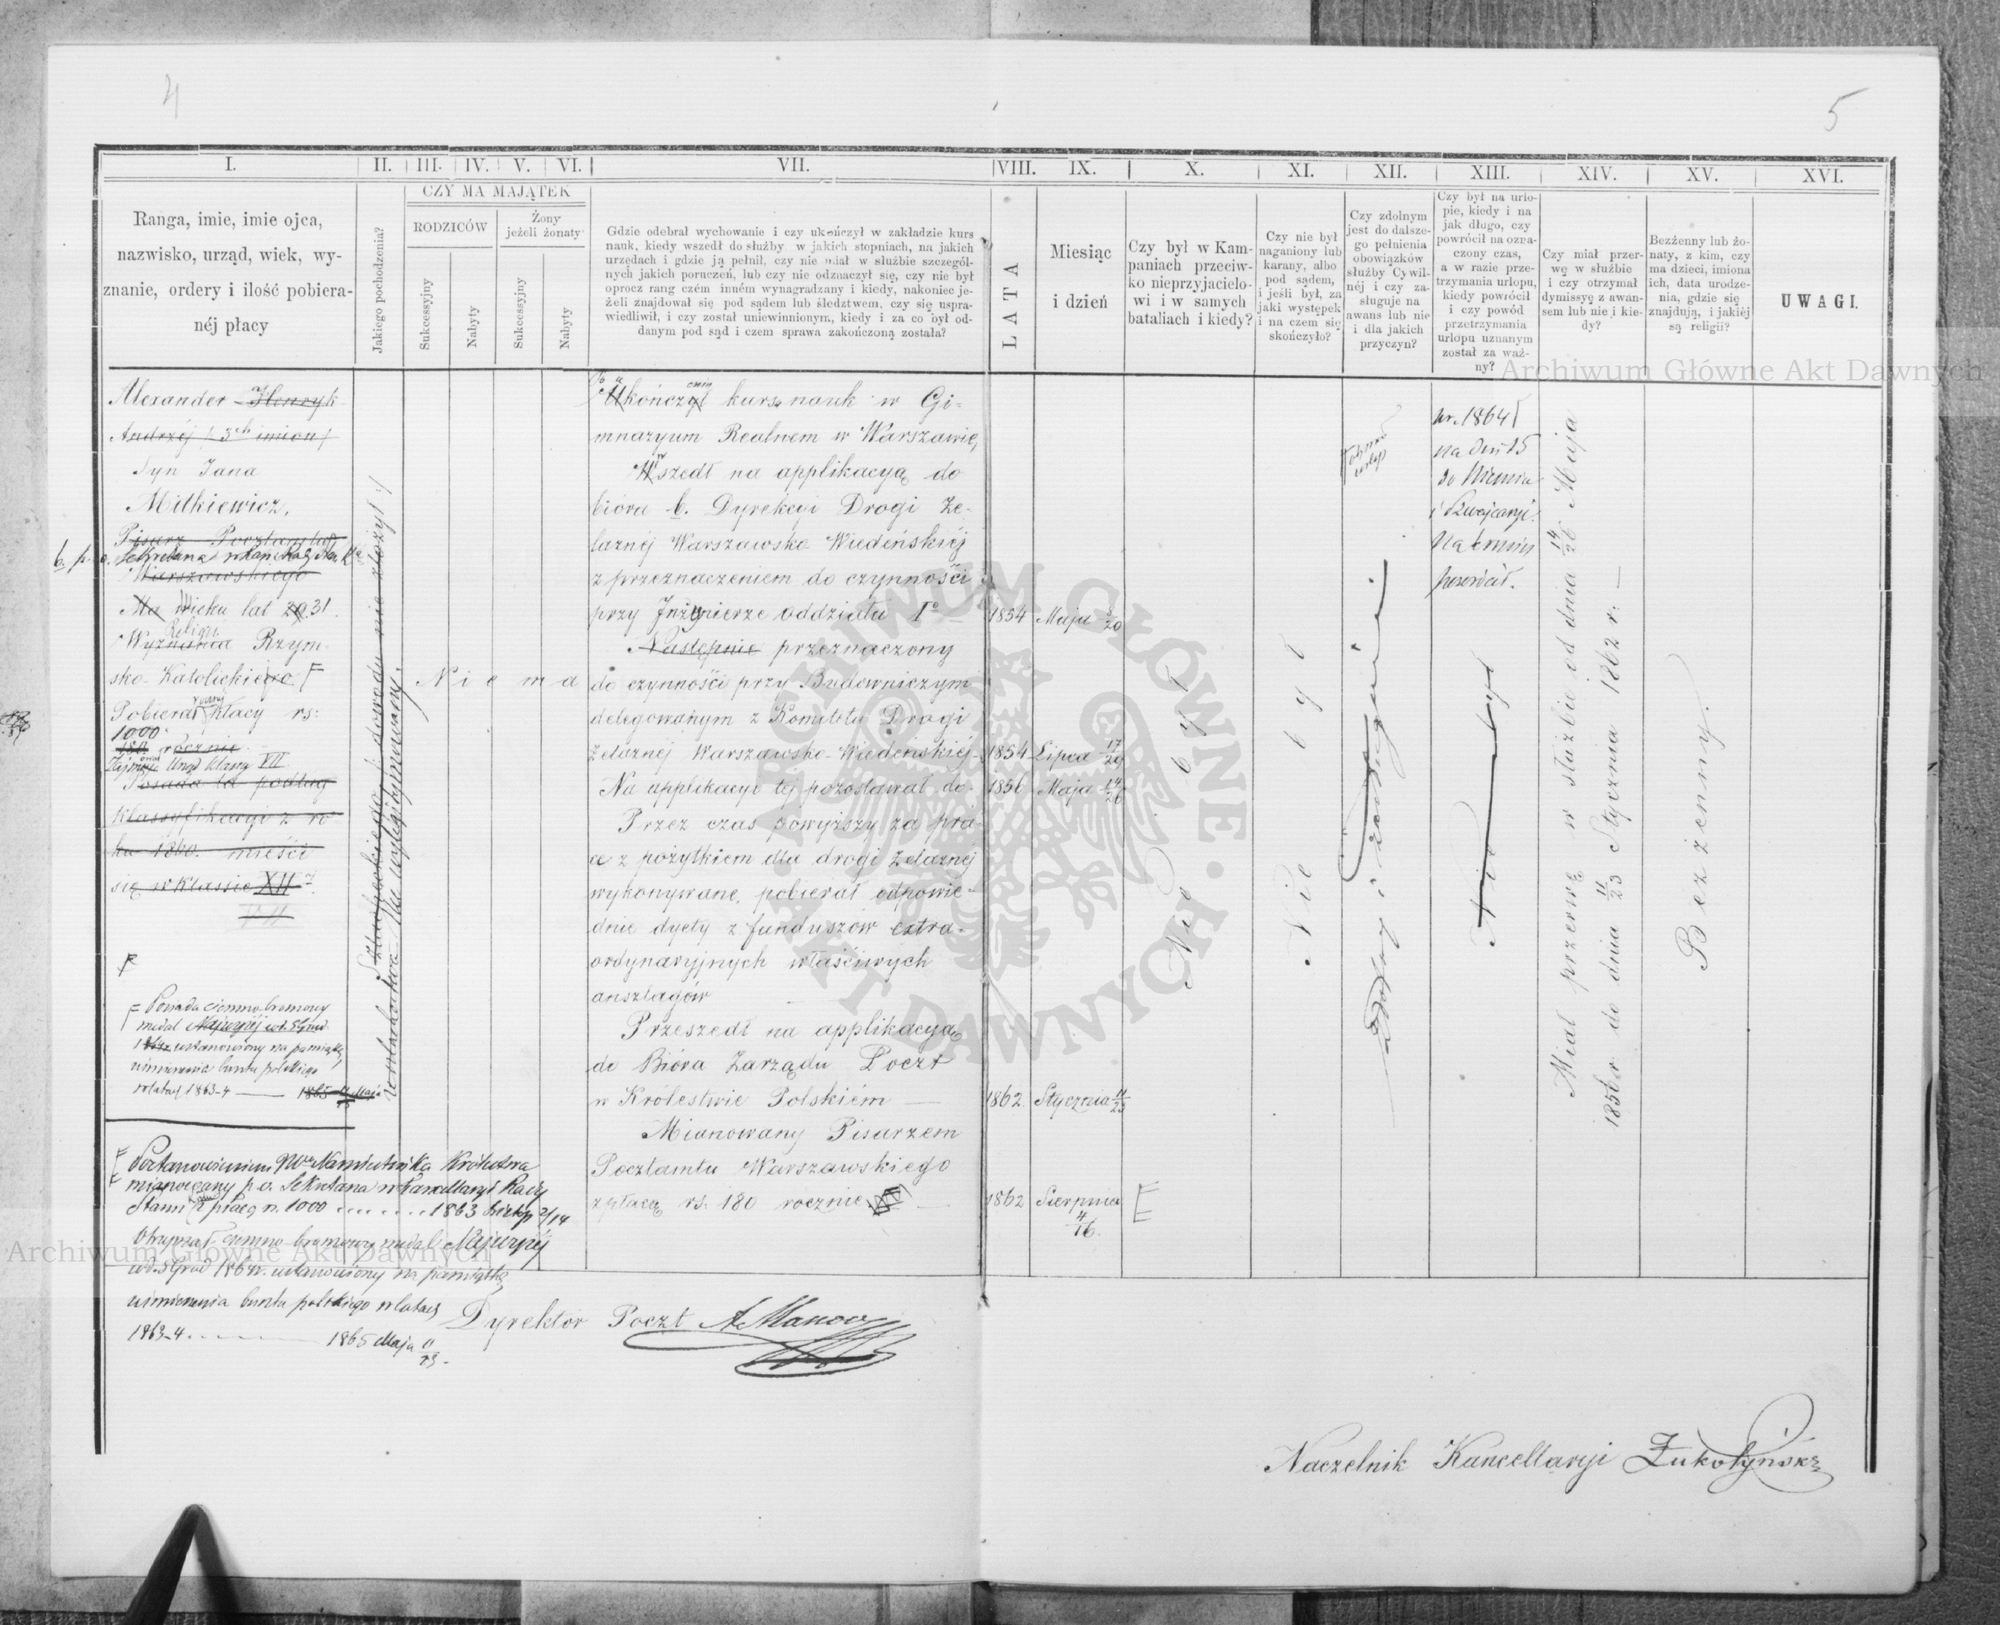 4
5
I.
II.
III.
IV.
V.
VI.
VII.
VIII.
IX.
X.
XI.
XII.
XIII.
XIV.
XV.
XVI.
Ranga, imie, imie ojca,
nazwisko, urząd, wiek, wy-
znanie, ordery i ilość pobiera-
néj płacy
Jakiego pochodzenia?
CZY MA MAJĄTEK
RODZICÓW
Żony
jeżeli żonaty
Sukcessyjny
Nabyty
Sukcessyjny
Nabyty
Gdzie odebrał wychowanie i czy ukończył w zakładzie kurs
nauk, kiedy wszedł do służby, w jakich stopniach, na jakich
urzędach i gdzie ją pełnił, czy nie miał w służbie szczegól-
nych jakich poruczeń, lub czy nie odznaczył się, czy nie był
oprocz rang czém inném wynagradzany i kiedy, nakoniec je-
żeli znajdował się pod sądem lub śledztwem, czy się uspra-
wiedliwił, i czy został uniewinnionym, kiedy i za co był od-
danym pod sąd i czem sprawa zakończoną została?
LATA
Miesiąc
i dzień
Czy był w Kam-
paniach przeciw-
ko nieprzyjacielo-
wi i w samych
bataliach i kiedy?
Czy nie był
naganiony lub
karany, albo
pod sądem,
i jeśli był, za
jaki występek
i na czem się
skończyło?
Czy zdolnym
jest do dalsze-
go pełnienia
obowiązków
służby Cywil-
néj i czy za-
sługuje na
awans lub nie
i dla jakich
przyczyn?
Czy był na urlo-
pie, kiedy i na
jak długo, czy
powrócił na ozna-
czony czas,
a w razie prze-
trzymania urlopu,
kiedy powrócił
i czy powód
przetrzymania
urlopu uznanym
został za waż-
ny?
Czy miał przer-
wę w służbie
i czy otrzymał
dymissyę z awan-
sem lub nie i kie-
dy?
Bezżenny lub żo-
naty, z kim, czy
ma dzieci, imiona
ich, data urodze-
nia, gdzie się
znajdują, i jakiéj
są religii?
UWAGI.
Alexander Henryk
Andrzéj / 3ch imion /
Syn Jana
Mitkiewicz,
Pisarz Pocztamtu
b. p. o. Sekretarza
Warszawskiego
Ma Wieku lat 31
Religii
Wyznania Rzym-
sko-Katolickiego
Pobierał płacy rs:
1000
180. rocznie
Urząd klasy VII
Posada ta podług
klassyfikacyi z ro-
ku 1860. mieści
się w klassie XII
Posiada ciemno-bronzowy
medal Najwyżéj
ustanowiony na pamiątkę
uśmierzenia buntu polskiego
w latach 1863-4 1865 Maja
Postanowieniem Namiestnika Królestwa
mianowany p. o. Sekretarza w Kancellaryi Rady
Stanu z płacą rs. 1000 . . . . . . . 1863 2/14
Otrzymał ciemno-bronzowy medal Najwyżéj
ustanowiony na pamiątkę
uśmierzenia buntu polskiego w latach
1863-4 . . . 1865 Maja 11/23.
Szlacheckiego, dowodu nie złożył
Szlachectwa nie wylegitymowany.
Niema
Ukończył kurs nauk w Gi-
mnazyum Realnem w Warszawie,
Wszedł na applikacyą do
bióra b. Dyrekcyi Drogi Że-
laznéj Warszawsko Wiedeńskiéj
z przeznaczeniem do czynności
przy Inżynierze oddziału Iº
1854
Maja 8/20
Następnie przeznaczony
do czynności przy Budowniczym
delegowanym z Komitetu Drogi
żelaznéj Warszawsko-Wiedeńskiéj
1854
Lipca 17/29
Na applikacyi téj pozostawał do
1856
Maja 14/26
Przez czas powyższy za pra-
ce z pożytkiem dla drogi żelaznéj
wykonywane, pobierał odpowie-
dnie dyety z funduszów extra-
ordynaryjnych właściwych
anszlagów
Przeszedł na applikacyą
do Bióra Zarządu Poczt
w Królestwie Polskiém
1862
Stycznia 11/23
Mianowany Pisarzem
Pocztamtu Warszawskiego
z płacą rs. 180 rocznie
1862
Sierpnia
4/16.
Nie był
Nie był
Zdolny i zasługuje
w r. 1864
na dni 15
do Niemiec
i Szwajcaryi.
Na termin
powrócił.
Nie był
Miał przerwę w służbie od dnia 14/26 Maja
1856 r do dnia 11/23 Stycznia 1862 r. —
Bezżenny.
Dyrektor Poczt
Naczelnik Kancellaryi Żukotyński
Archiwum Główne Akt Dawnych
Archiwum Główne Akt Dawnych
ARCHIWUM GŁÓWNE AKT DAWNYCH